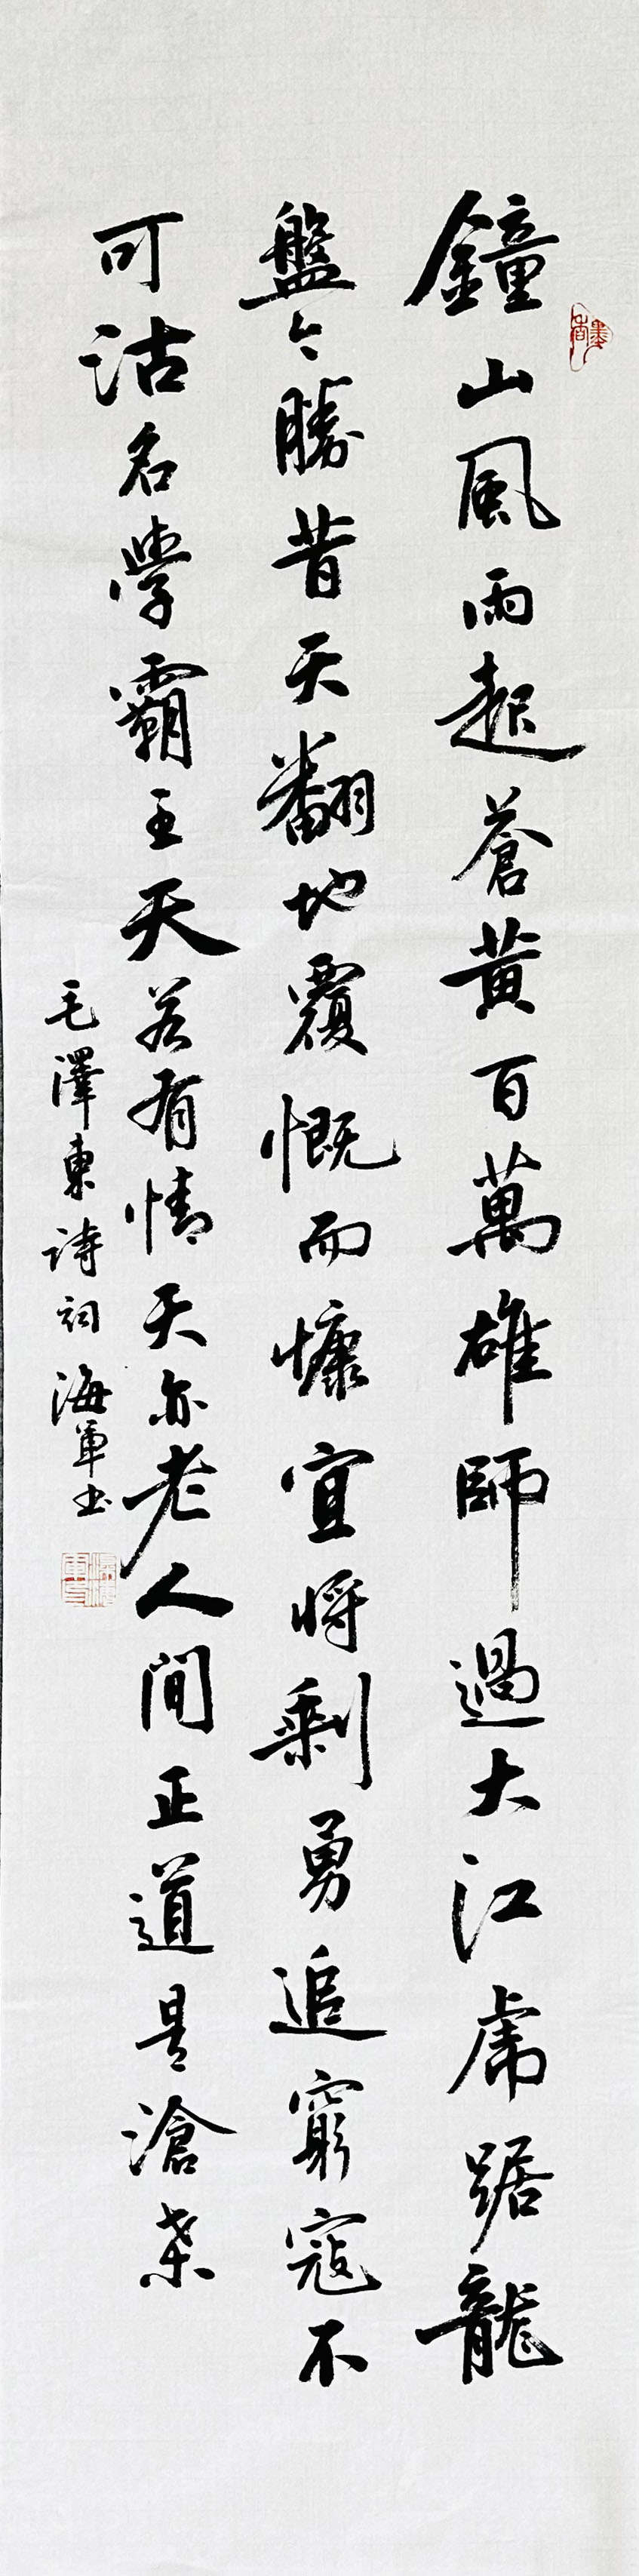 鐘山風雨起蒼黃百萬雄師過大江虎踞龍
盤今勝昔天翻地覆慨而慷宜将剩勇追窮寇不
可沽名學霸王天若有情天亦老人間正道是滄桑
毛澤東詩詞 海軍书
墨香